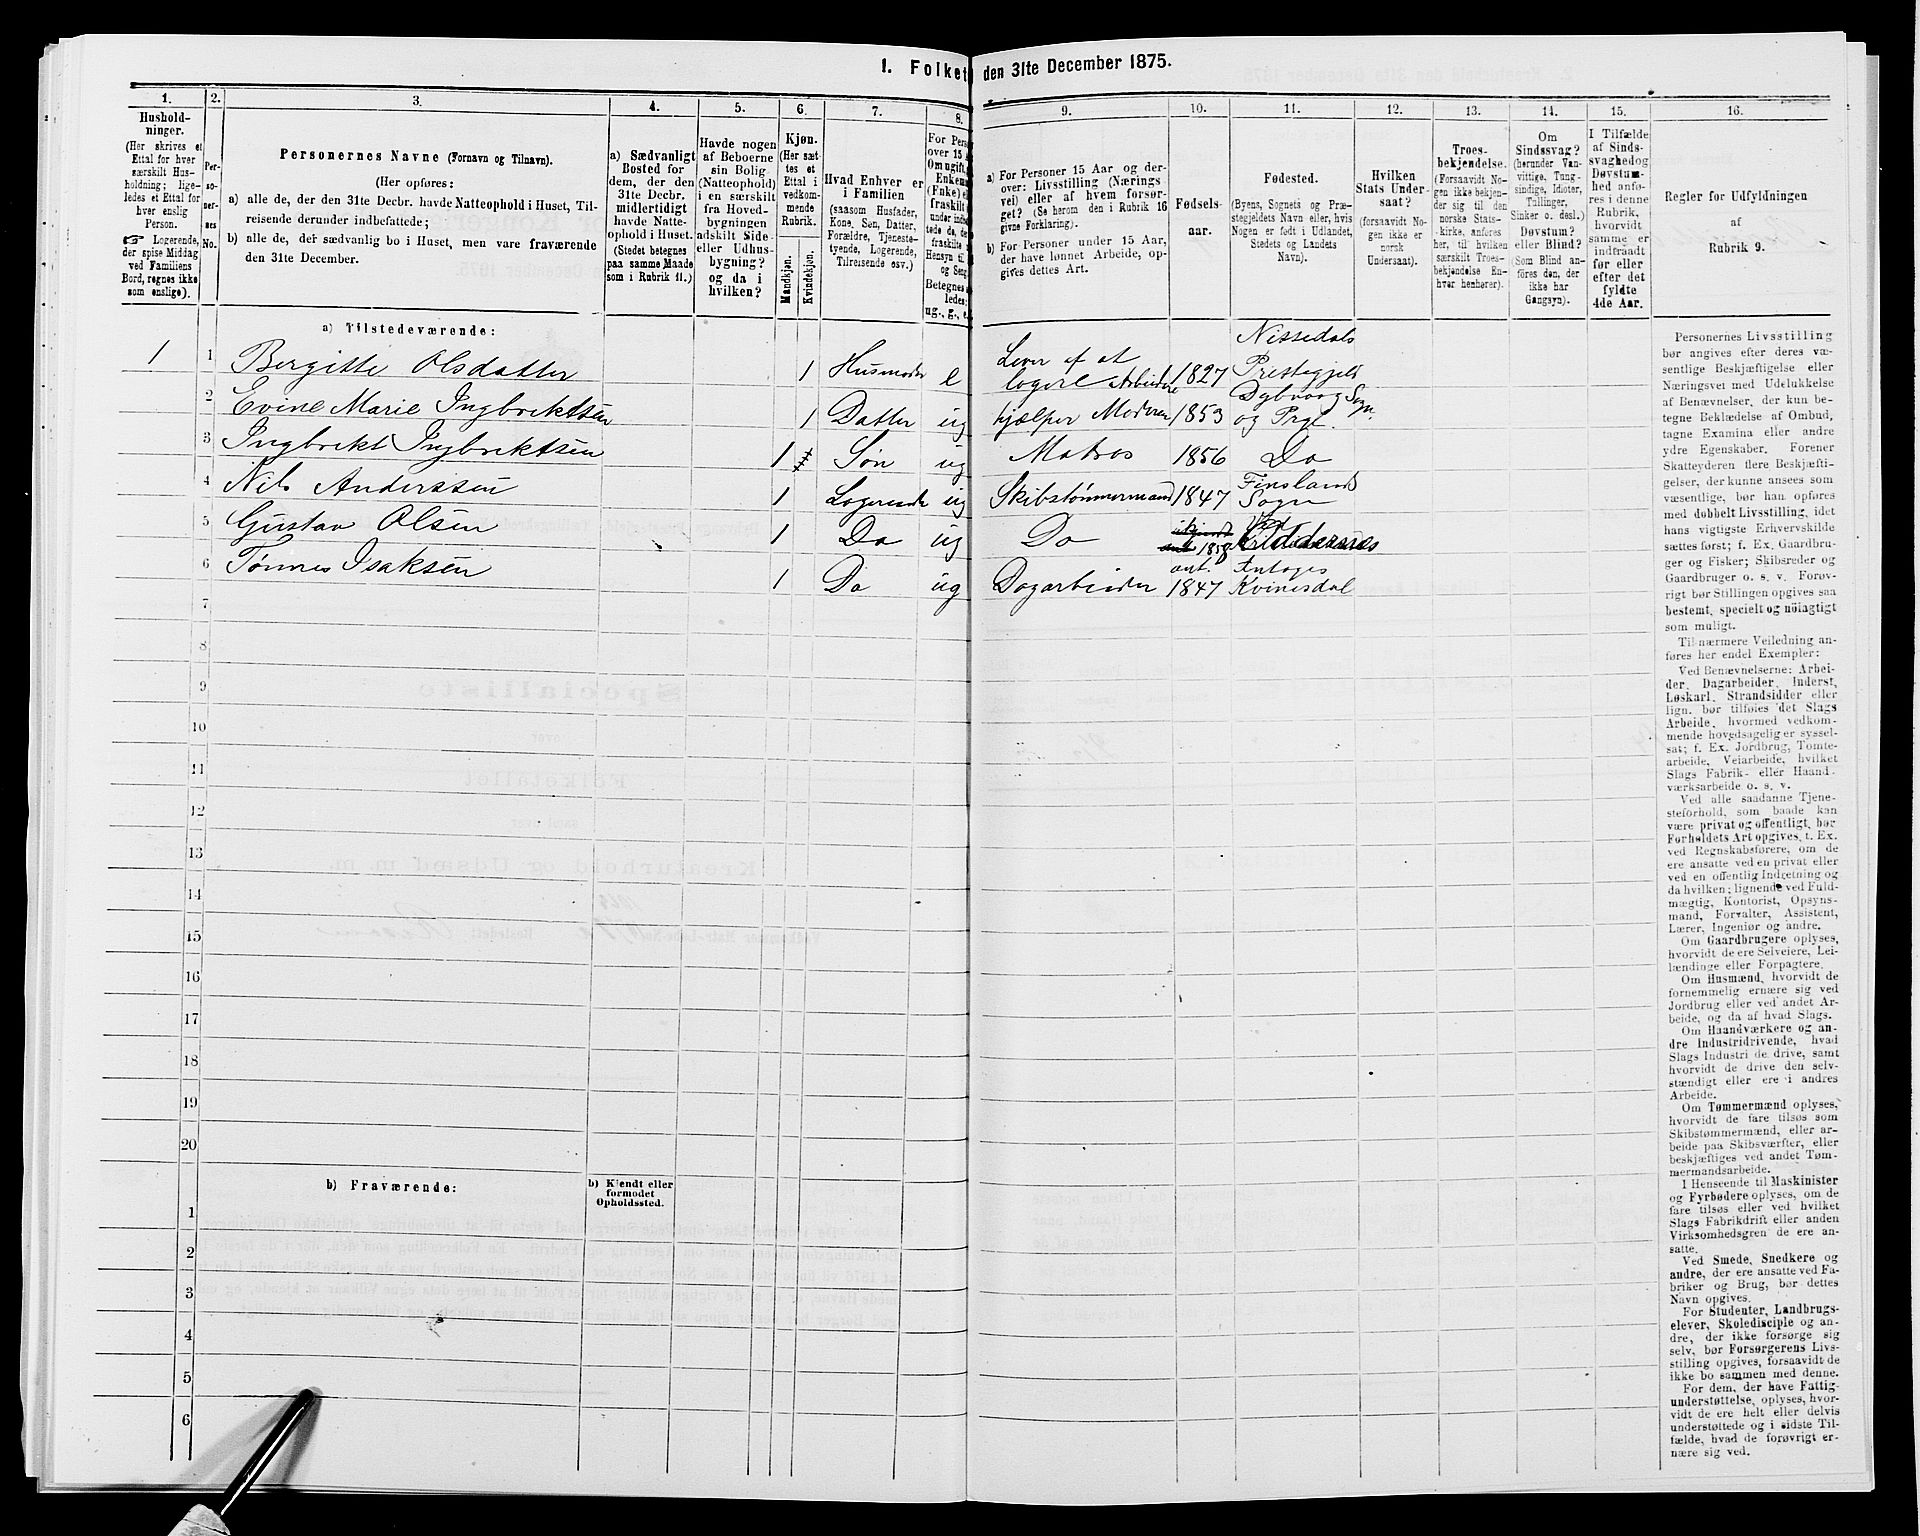 1. Folket den 31te December 1875.
1. 2. 3. 4. 5. 6. 7. 8. 9. 10. 11. 12. 13. 14. 15. 16.
Hushold-
ninger.
(Her skrives et
Ettal for hver
særskilt Hus-
holdning; lige-
ledes et Ettal for
hver enslig
Person.
☞ Logerende,
der spise Middag
ved Familiens
Bord, regnes ikke
som enslige).
Per-
so-
ner-
nes
No.
Personernes Navne (Fornavn og Tilnavn).
(Her opføres:
a) alle de, der den 31te Decbr. havde Natteophold i Huset, Til-
reisende derunder indbefattede;
b) alle de, der sædvanlig bo i Huset, men vare fraværende
den 31te December.
a) Sædvanligt
Bosted for
dem, der den
31te Decbr.
midlertidigt
havde Natte-
ophold i Huset.
(Stedet betegnes
paa samme Maade
som i Rubrik 11.)
Havde nogen
af Beboerne
sin Bolig
(Natteophold)
i en særskilt
fra Hoved-
bygningen
adskilt Side-
eller Udhus-
bygning?
og da i
hvilken?
Kjøn.
(Her sæt-
tes et
Ettal i
vedkom-
mende
Rubrik.
Mandkjøn.
Kvindekjøn.
Hvad Enhver er
i Familien
(saasom Husfader,
Kone, Søn, Datter,
Forældre, Tjeneste-
tyende, Logerende,
Tilreisende osv.)
For Pers
over 15 A
Om ugift,
Enkem
(Fnke) el
fraskilt
under ind
tede de, d
fraskilte
Hensyn til
og Seng
Betegnes
ledes:
ug., g., e.
a) For Personer 15 Aar og der-
over: Livsstilling (Nærings
vei) eller af hvem forsør-
get? (Se herom den i Rubrik 16
givne Forklaring).
b) For Personer under 15 Aar,
der have lønnet Arbeide, op-
gives dettes Art.
Fødsels-
aar.
Fødested.
(Byens, Sognets og Præ-
stegjeldets Navn eller, hvis
Nogen er født i Udlandet,
Stedets og Landets
Navn).
Hvilken
Stats Under-
saat?
(forsaavidt No-
gen ikke er
norsk
Undersaat).
Troes-
bekjendelse.
(Forsaavidt No-
gen ikke bekjen-
der sig til den
norske Stats-
kirke, anføres
her, til hvilken
særskilt Troes-
bekjendelse En-
hver henhører).
Om
Sindssvag?
(herunder Van-
vittige, Tung-
sindige, Idioter,
Tullinger,
Sinker o. desl.)
Døvstum?
eller Blind?
(Som Blind an-
føres den, der
ikke har
Gangsyn).
I Tilfælde
af Sinds-
svaghedog
Døvstum-
hed anfø-
res i denne
Rubrik,
hvorvidt
samme er
indtraadt
før eller
efter det
fyldte
4de Aar.
Regler for Udfyldningen
af
Rubrik 9.
a) Tilstedeværende:
1 1 Bergitte Olsdatter 1 Husmoder e Lever af at logere Arbeidere 1827 Nissedals Prestegjeld
2 Evine Marie Ingbrektsen 1 Datter ug hjælper Moderen 1853 Dybvaag Sogn og Prgl.
3 Ingbrekt Ingbrektsen 1 Søn ug Matros 1856 Do
4 Nils Anderssen 1 Logerende ug Skibstømmermand 1847 Finslands Sogn
5 Gustav Olsen 1 Do ug Do 1858
6 Tønnes Isaksen 1 Do ug Dagarbeider ant. 1847 Antages Kvinesdal
7
8
9
10
11
12
13
14
15
16
17
18
19
20
b) Fraværende:
b) Kjendt eller
formodet
Opholdssted.
1
2
3
4
5
6
Personernes Livsstilling
bør angives efter deres væ-
sentlige Beskjæftigelse eller
Næringsvei med Udelukkelse
af Benævnelser, der kun be-
tegne Beklædelse af Ombud,
tagne Examina eller andre
ydre Egenskaber. Forener
Skatteyderen flere Beskjæfti-
gelser, der kunne ansees som
væsentlige, bør han opføres
med dobbelt Livsstilling, idet
hans vigtigste Erhvervskilde
sættes først; f. Ex. Gaardbru-
ger og Fisker; Skibsreder og
Gaardbruger o. s. v. Forøv-
rigt bør Stillingen opgives saa
bestemt, specielt og nöiagtigt
som muligt.
Til nærmere Veiledning an-
føres her endel Exempler:
Ved Benævnelserne: Arbei-
der, Dagarbeider, Inderst,
Løskarl, Strandsidder eller
lign. bør tilføies det Slags
Arbeide, hvormed vedkom-
mende hovedsagelig er syssel-
sat; f. Ex. Jordbrug, Tomte-
arbeide, Veiarbeide, hvilket
Slags Fabrik- eller Haand
værksarbeide o. s. v.
Ved alle saadanne Tjene-
steforhold, som baade kan
være privat og offentligt, bør
Forholdets Art opgives, t. Ex.
ved Regnskabsførere, om de
ere ansatte ved en privat eller
ved en offentlig Indretning og
da hvilken; lignende ved Fuld-
mægtig, Kontorist, Opsyns-
mand, Forvalter, Assistent,
Lærer, Ingeniør og andre.
Om Gaardbrugere oplyses,
hvorvidt de ere Selveiere, Lei-
lændinge eller Forpagtere.
Om Husmænd, hvorvidt de
fornemmelig ernære sig ved
Jordbrug eller ved andet Ar-
beide, og da af hvad Slags.
Om Haandværkere og an-
dre Industridrivende, hvad
Slags Industri de drive, samt
hvorvidt de drive den selv-
stændigt eller ere i andres
Arbeide.
Om Tømmermænd oplyses,
hvorvidt de fare tilsøs som
Skibstømmermænd, eller ar-
beide paa Skibsværfter, eller
beskjæftiges ved andet Tøm-
mermandsarbeide.
I Henseende til Maskinister
og Fyrbødere oplyses, om de
fare tilsøs eller ved hvilket
Slags Fabrikdrift eller anden
Virksomhedsgren de ere an-
satte.
Ved Smede, Snedkere og
andre, der ere ansatte ved Fa-
briker og Brug, bør dettes
Navn opgives.
For Studenter, Landbrugs-
elever, Skoledisciple og an-
dre, der ikke forsørge sig
selv, bør Forsørgerens Livs-
stilling opgives, forsaavidt de
ikke bo sammen med denne.
For dem, der have Fattig-
understøttelse, oplyses, hvor-
vidt de ere helt eller delvis
understøttede og i sidste Til-
fælde, hvad de forøvrigt er-
nære sig ved.